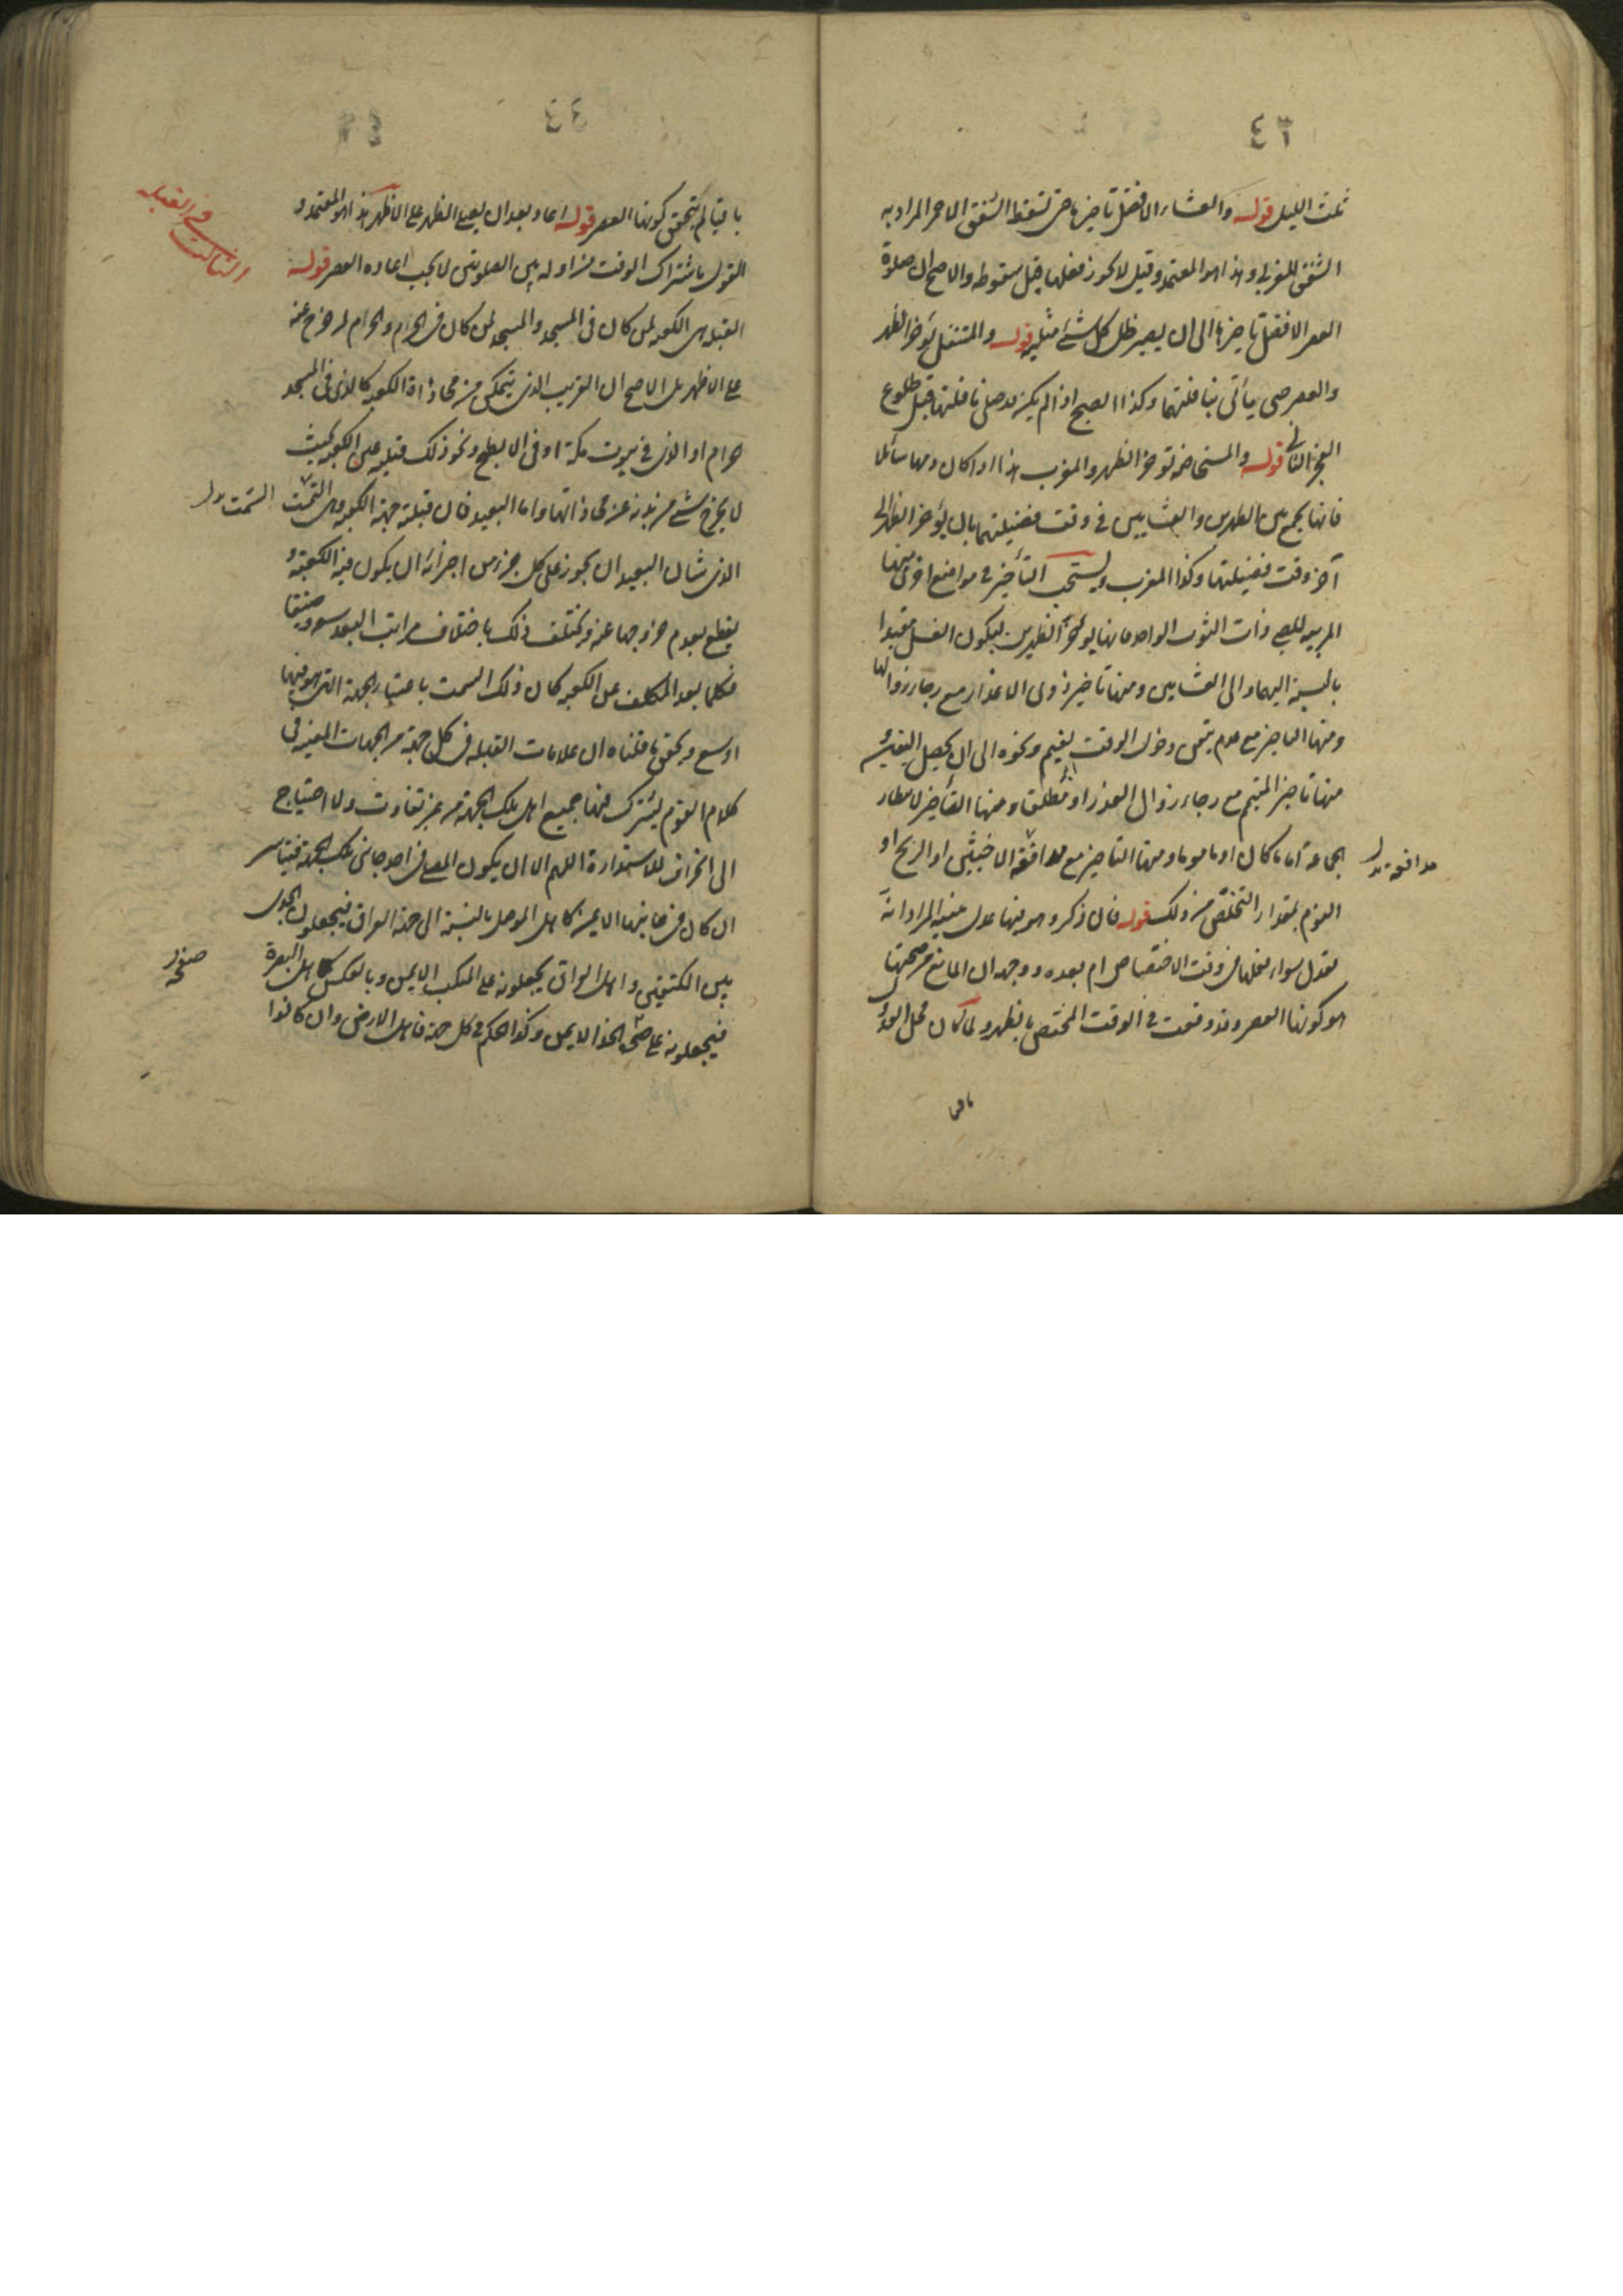 ٤٣
ثلث الليل قوله والعشاء الافضل تاخيرها حتى تسقط الشفق الاحمر المراد به
الشفق المغربي وهذا هو المعتمد وقيل لا يجوز فعلها قبل سقوطه والاصح ان صلوة
العصر الافضل تاخيرها الى ان يصير ظل كل شئ مثليه قوله والمتنفل يؤخر الظهر
والعصر حتى يأتى بنافلتهما وكذا الصبح اذا لم يكن قد صلى نافلتها قبل طلوع
الفجر الثاني قوله والمستحاضة تؤخر الظهر والمغرب هذا اذا كان دمها سائلا
فانها تجمع بين الظهرين والعشايين في وقت فضيلتهما بان يؤخر الظهر الى
آخر وقت فضيلتها وكذا المغرب ويستحب التأخير في مواضع اخرى منها
المربيه للصبي ذات الثوب الواحد فانها تؤخر الظهرين ليكون الغسل مقيدا
بالنسبة اليهما والى العشايين ومنها تاخير ذوى الاعذار مع رجاء زوالها
ومنها التاخير مع عدم تيقن دخول الوقت بغيم ونحوه الى ان يحصل اليقين و
منها تاخير المتيمم مع رجاء زوال العذر او مطلقا ومنها التأخير لانتظار
الجماعة اماما كان او مأموما ومنها التاخير مع مدافعة الاخبثين او الريح او
النوم بمقدار التخلص من ذلك قوله فان ذكر وهو فيها عدل بنيته المراد انه
يعدل سواء فعلها في وقت الاختصاص ام بعده ووجهه ان المانع من صحتها
هو كونها العصر وقد وقعت في الوقت المختص بالظهر ولما كان محل العدول
باقيا
مدافعة بدل
٤٤
باقيا لم يتحقق كونها العصر قوله اعاد بعد ان يصلي الظهر على الاظهر هذا هو المعتمد و
القول باشتراك الوقت من اوله بين الصلوتين لا يجب اعادة العصر قوله
القبلة هي الكعبة لمن كان في المسجد والمسجد لمن كان في الحرام والحرام لمن خرج عنه
على الاظهر بل الاصح ان القريب الذى يتمكن من محاذاة الكعبة كالذى في المسجد
الحرام او الذى في بيوت مكة او في الابطح ونحو ذلك قبلته عين الكعبة بحيث
لا يخرج شئ من بدنه عن محاذاتها واما البعيد فان قبلته جهة الكعبة وهى السمت
الذى شان البعيد ان يجوز على كل جزء من اجزائه ان يكون فيه الكعبة و
يقطع بعدم خروجها عنه ويختلف ذلك باختلاف مراتب البعد سعة وضيقا
فكلما بعد المكلف عن الكعبة كان ذلك السمت باعتبار الجهة التى هو فيها
اوسع ويحقق ما قلناه ان علامات القبلة في كل جهة من الجهات المعينة في
كلام القوم يشترك فيها جميع اهل تلك الجهة من غير تفاوت ولا احتياج
الى انحراف للاستدارة اللهم الا ان يكون المصلي في احد جانبي تلك الجهة فيتياسر
ان كان في جانبها الايمن كاهل الموصل بالنسبة الى جهة العراق فيجعلون الجدى
بين الكتفين واهل العراق يجعلونه على المنكب الايمن وبالعكس كاهل البصرة
فيجعلونه على الخد الايمن وكذا الحكم في كل جهة فاهل الارض وان كانوا
الثالث في القبلة
السمت بدل